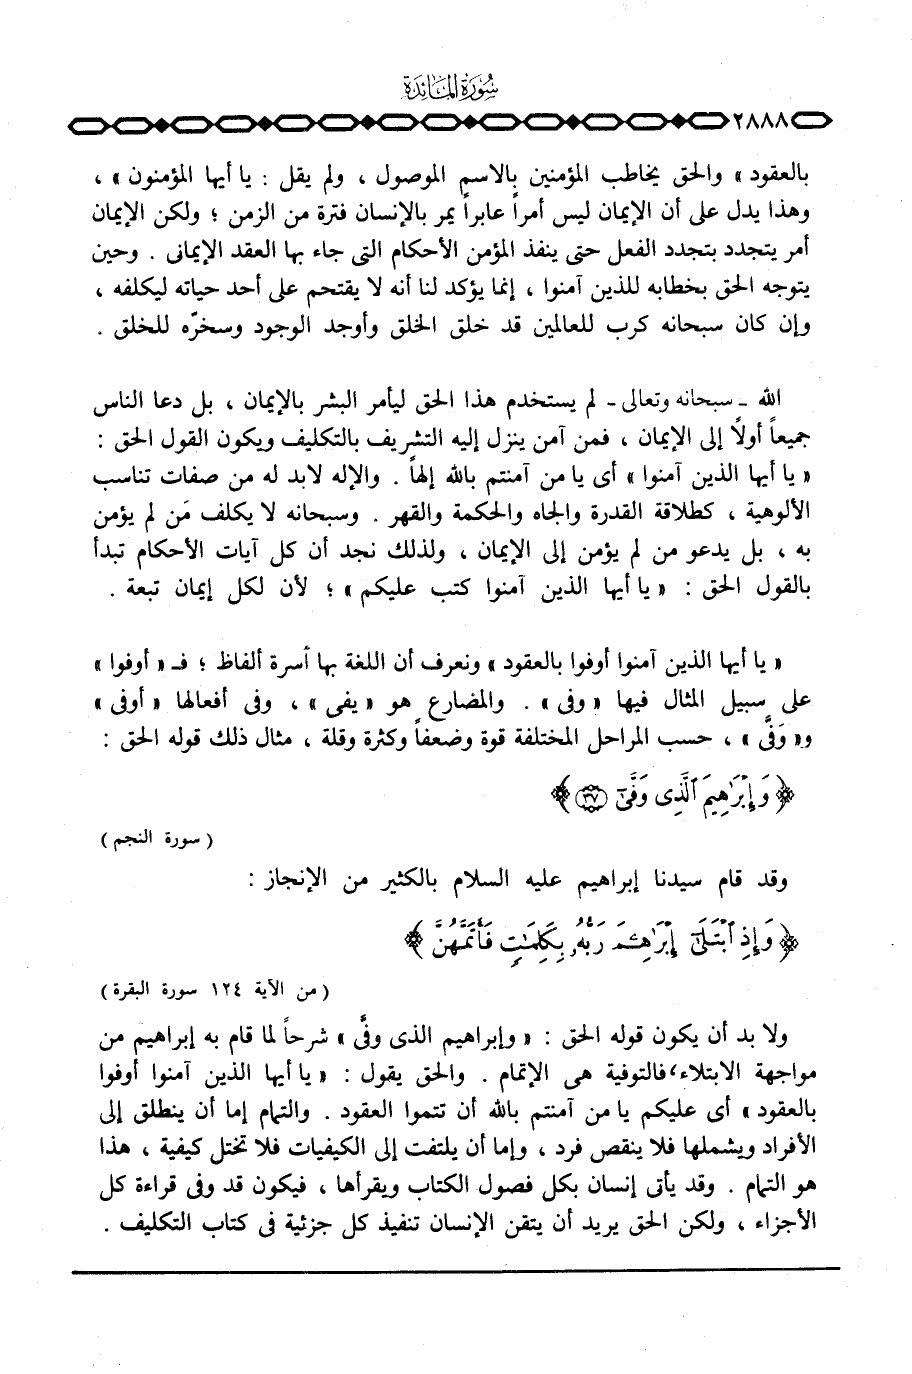 سُورَةُ المَائِدَة
٢٨٨٨
بالعقود » والحق يخاطب المؤمنين بالاسم الموصول ، ولم يقل : يا أيها المؤمنون » ،
وهذا يدل على أن الإيمان ليس أمراً عابراً يمر بالإنسان فترة من الزمن ؛ ولكن الإيمان
أمر يتجدد بتجدد الفعل حتى ينفذ المؤمن الأحكام التى جاء بها العقد الإيمانى . وحين
يتوجه الحق بخطابه للذين آمنوا ، إنما يؤكد لنا أنه لا يقتحم على أحد حياته ليكلفه ،
وإن كان سبحانه كرب للعالمين قد خلق الخلق وأوجد الوجود وسخرّه للخلق .
الله ـ سبحانه وتعالى ـ لم يستخدم هذا الحق ليأمر البشر بالإيمان ، بل دعا الناس
جميعاً أولاً إلى الإيمان ، فمن آمن ينزل إليه التشريف بالتكليف ويكون القول الحق :
« يا أيها الذين آمنوا » أى يا من آمنتم بالله إلهاً . والإله لابد له من صفات تناسب
الألوهية ، كطلاقة القدرة والجاه والحكمة والقهر . وسبحانه لا يكلف مَن لم يؤمن
به ، بل يدعو من لم يؤمن إلى الإيمان ، ولذلك نجد أن كل آيات الأحكام تبدأ
بالقول الحق : « يا أيها الذين آمنوا كتب عليكم » ؛ لأن لكل إيمان تبعة .
« يا أيها الذين آمنوا أوفوا بالعقود » ونعرف أن اللغة بها أسرة ألفاظ ؛ فـ « أوفوا »
على سبيل المثال فيها « وفى » . والمضارع هو « يفى » ، وفى أفعالها « أوفى »
و« وَفَّى » ، حسب المراحل المختلفة قوة وضعفاً وكثرة وقلة ، مثال ذلك قوله الحق :
﴿ وَإِبْرَٰهِيمَ ٱلَّذِى وَفَّىٰٓ ٣٧ ﴾
( سورة النجم )
وقد قام سيدنا إبراهيم عليه السلام بالكثير من الإنجاز :
﴿ وَإِذِ ٱبْتَلَىٰٓ إِبْرَٰهِـۧمَ رَبُّهُۥ بِكَلِمَـٰتٍ فَأَتَمَّهُنَّ ﴾
( من الآية ١٢٤ سورة البقرة )
ولا بد أن يكون قوله الحق : « وإبراهيم الذى وفَّى » شرحاً لما قام به إبراهيم من
مواجهة الابتلاء، فالتوفية هى الإتمام . والحق يقول : « يا أيها الذين آمنوا أوفوا
بالعقود » أى عليكم يا من آمنتم بالله أن تتموا العقود . والتمام إما أن ينطلق إلى
الأفراد ويشملها فلا ينقص فرد ، وإما أن يلتفت إلى الكيفيات فلا تختل كيفية ، هذا
هو التمام . وقد يأتى إنسان بكل فصول الكتاب ويقرأها ، فيكون قد وفى قراءة كل
الأجزاء ، ولكن الحق يريد أن يتقن الإنسان تنفيذ كل جزئية فى كتاب التكليف .